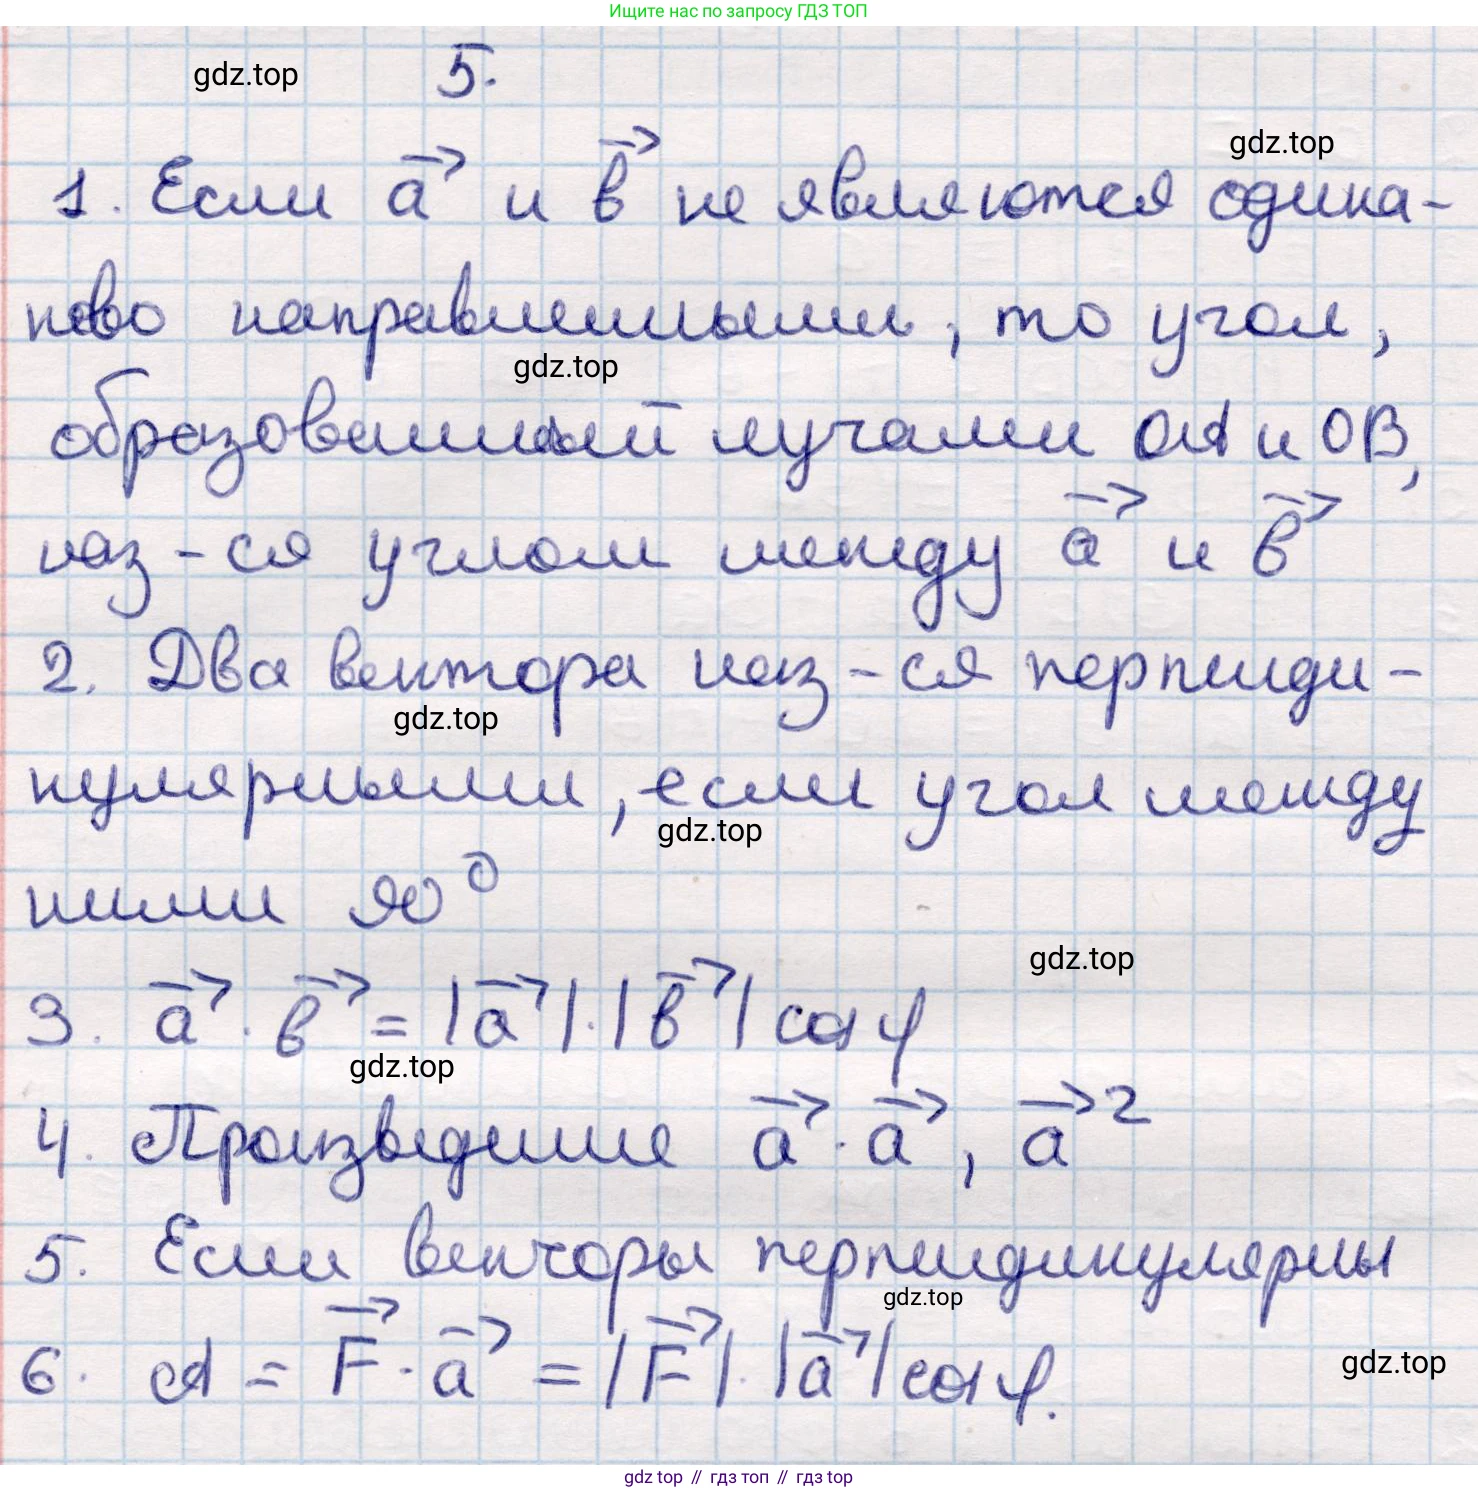 Ищите нас по запросу ГДЗ ТОП
gdz.top
5.
gdz.top
1. Если a⃗ и b⃗ не являются одина-
ково направленными, то угол,
gdz.top
образованный лучами OA и OB,
наз-ся углом между a⃗ и b⃗
2. Два вектора наз-ся перпенди-
gdz.top
кулярными, если угол между
gdz.top
ними 90°
gdz.top
3. a⃗ · b⃗ = |a⃗| · |b⃗| cos φ
gdz.top
4. Произведение a⃗ · a⃗, a⃗²
5. Если векторы перпендикулярны
gdz.top
6. A = F⃗ · a⃗ = |F⃗| · |a⃗| cos φ.
gdz.top
gdz top // гдз топ // gdz top